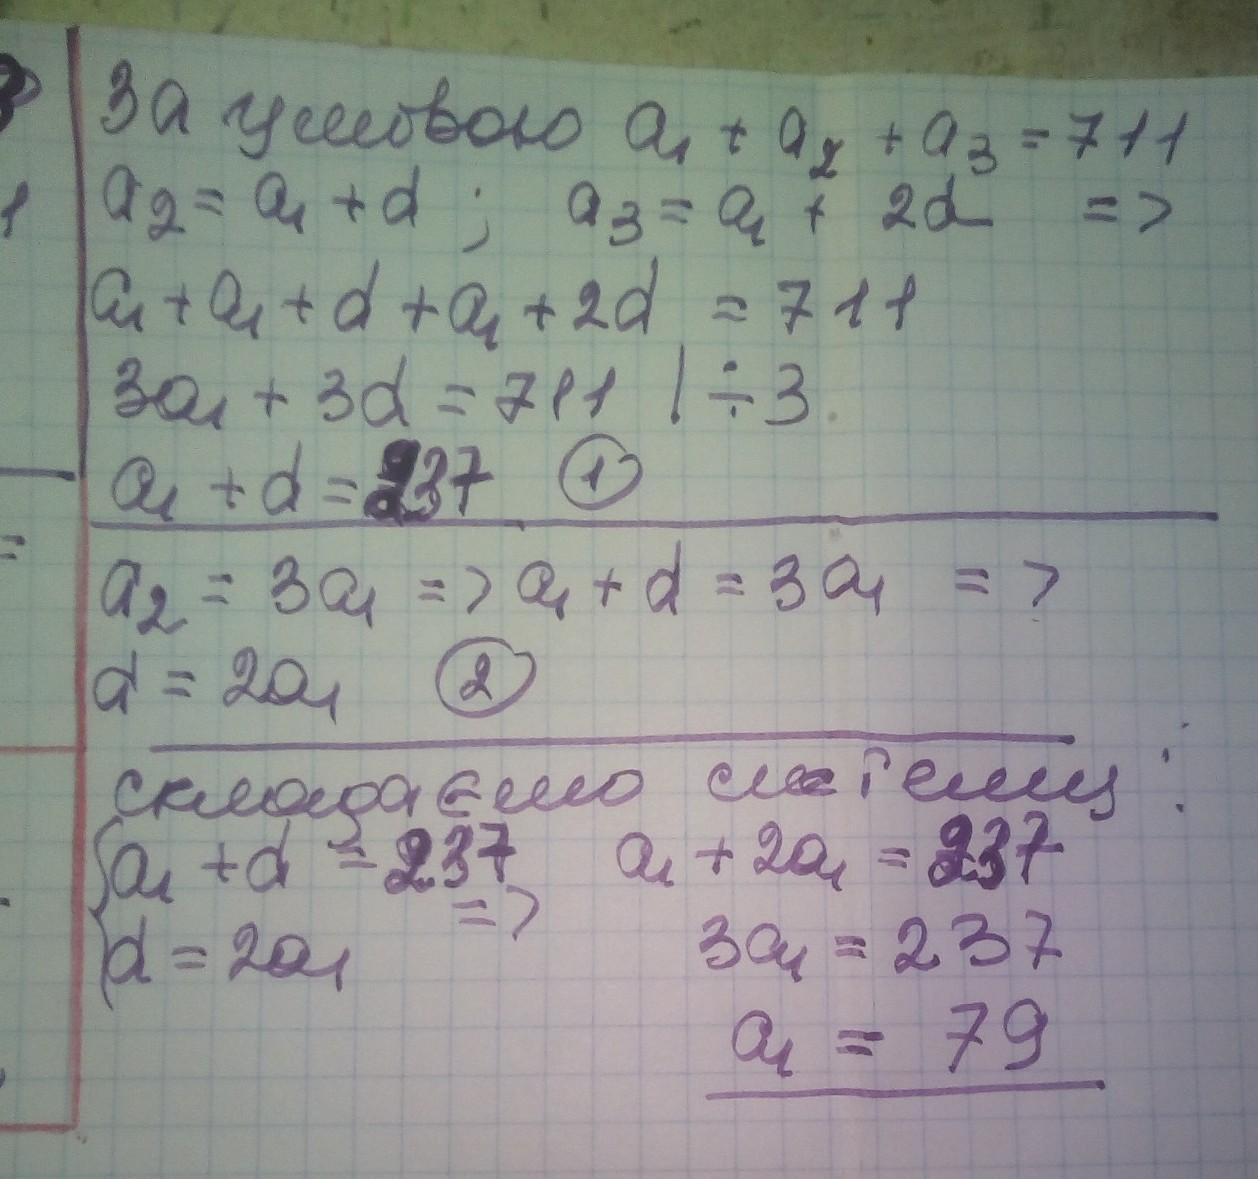 За умовою a₁ + a₂ + a₃ = 711
a₂ = a₁ + d ; a₃ = a₁ + 2d =>
a₁ + a₁ + d + a₁ + 2d = 711
3a₁ + 3d = 711 | ÷3
a₁ + d = 237 ①
a₂ = 3a₁ => a₁ + d = 3a₁ =>
d = 2a₁ ②
складаємо систему :
a₁ + d = 237 => a₁ + 2a₁ = 237
d = 2a₁ 3a₁ = 237
a₁ = 79